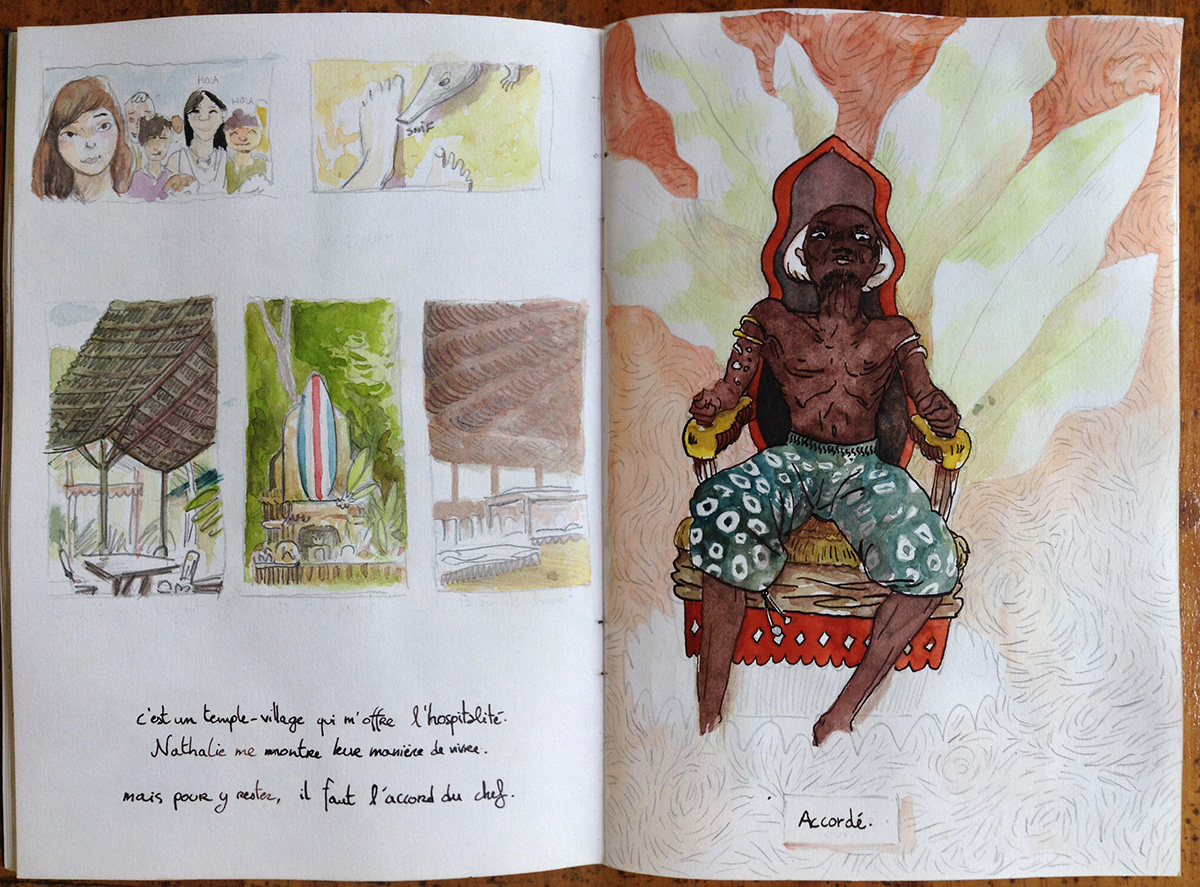 HOLA
HOLA
SNIF
c'est un temple-village qui m'offre l'hospitalité.
Nathalie me montre leur manière de vivre.
mais pour y rester, il faut l'accord du chef.
Accordé.